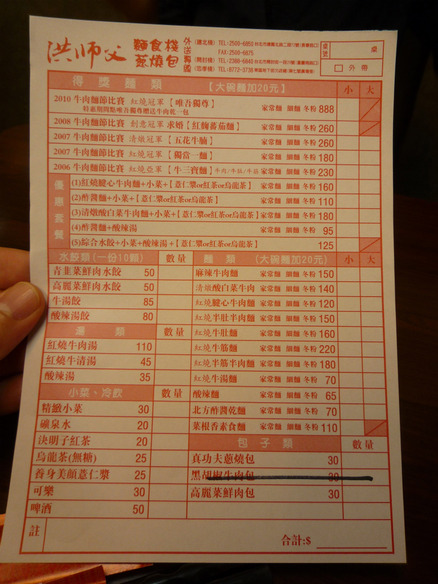 洪師父 麵食棧 蔥燒包
外送專園
TEL:2500-6850
FAX:2500-6875
桌
外帶
得獎麵類 【大碗麵加20元】 小 大
2010 牛肉麵節比賽 紅燒冠軍【唯吾獨尊】 家常麵 細麵 冬粉 888
2008 牛肉麵節比賽 創意冠軍 求婚【紅麴蕃茄麵】 家常麵 細麵 冬粉 260
2007 牛肉麵節比賽 清燉冠軍【五花牛腩】 家常麵 細麵 冬粉 260
2007 牛肉麵節比賽 紅燒冠軍【獨當一麵】 家常麵 細麵 冬粉 180
2006 牛肉麵節比賽 紅燒亞軍【牛三寶麵】 家常麵 細麵 冬粉 230
優惠套餐
(1)紅燒腱心牛肉麵+小菜+【薏仁漿or紅茶or烏龍茶】 家常麵 細麵 冬粉 160
(2)酢醬麵+小菜+【薏仁漿or紅茶or烏龍茶】 家常麵 細麵 冬粉 110
(3)清燉酸白菜牛肉麵+小菜+【薏仁漿or紅茶or烏龍茶】 家常麵 細麵 冬粉 180
(4)酢醬麵+酸辣湯 家常麵 細麵 冬粉 95
(5)綜合水餃+小菜+酸辣湯+【薏仁漿or紅茶or烏龍茶】 125
水餃類(一份10顆) 數量
青韭菜鮮肉水餃 50
高麗菜鮮肉水餃 50
牛湯餃 85
酸辣湯餃 80
湯類 數量
紅燒牛肉湯 110
紅燒牛清湯 45
酸辣湯 35
小菜、冷飲 數量
精緻小菜 30
礦泉水 20
決明子紅茶 20
烏龍茶(無糖) 25
養身美顏薏仁漿 25
可樂 30
啤酒 50
麵類 (大碗麵加20元) 小 大
麻辣牛肉麵 家常麵 細麵 冬粉 150
清燉酸白菜牛肉 家常麵 細麵 冬粉 140
紅燒腱心牛肉麵 家常麵 細麵 冬粉 120
紅燒半肚半肉麵 家常麵 細麵 冬粉 150
紅燒牛肚麵 家常麵 細麵 冬粉 160
紅燒牛筋麵 家常麵 細麵 冬粉 220
紅燒半筋半肉麵 家常麵 細麵 冬粉 180
紅燒牛湯麵 家常麵 細麵 冬粉 70
酸辣麵 家常麵 細麵 冬粉 65
北方酢醬乾麵 家常麵 細麵 冬粉 70
菜根香素食麵 家常麵 細麵 冬粉 110
包子類 數量
真功夫蔥燒包 30
黑胡椒牛肉包 30
高麗菜鮮肉包 30
註
合計:$